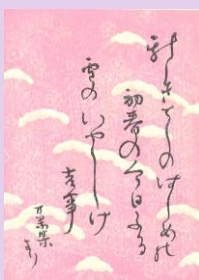 新しき としの はじめの
初春の 今日ふる
雪の いやしけ
吉事
万葉集
より